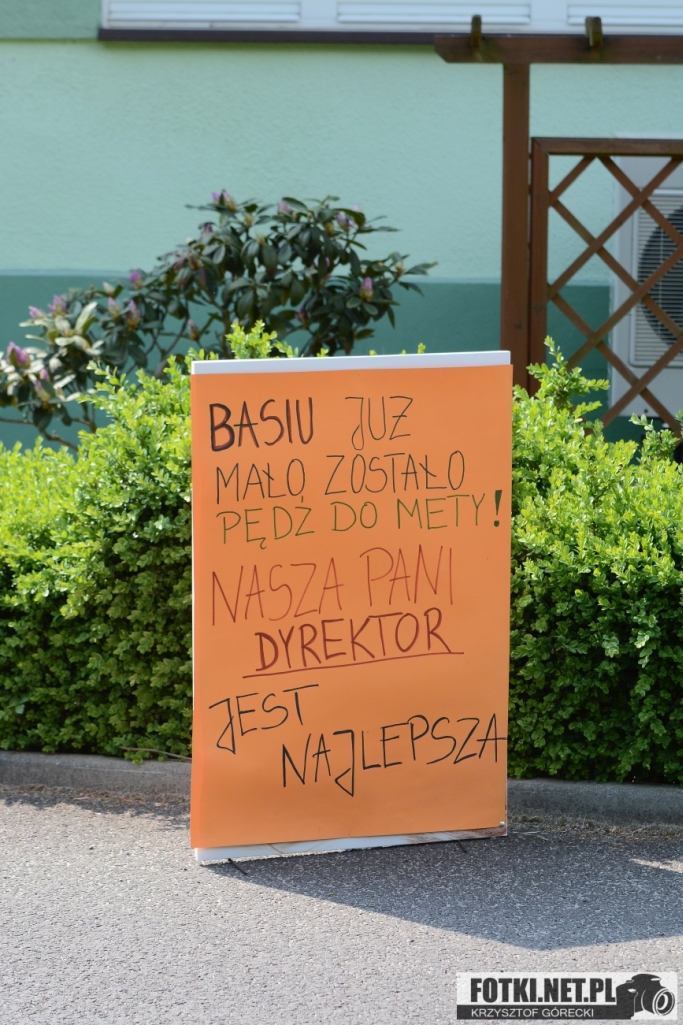 BASIU JUŻ
MAŁO ZOSTAŁO
PĘDŹ DO METY!
NASZA PANI
DYREKTOR
JEST
NAJLEPSZA
FOTKI.NET.PL
KRZYSZTOF GÓRECKI